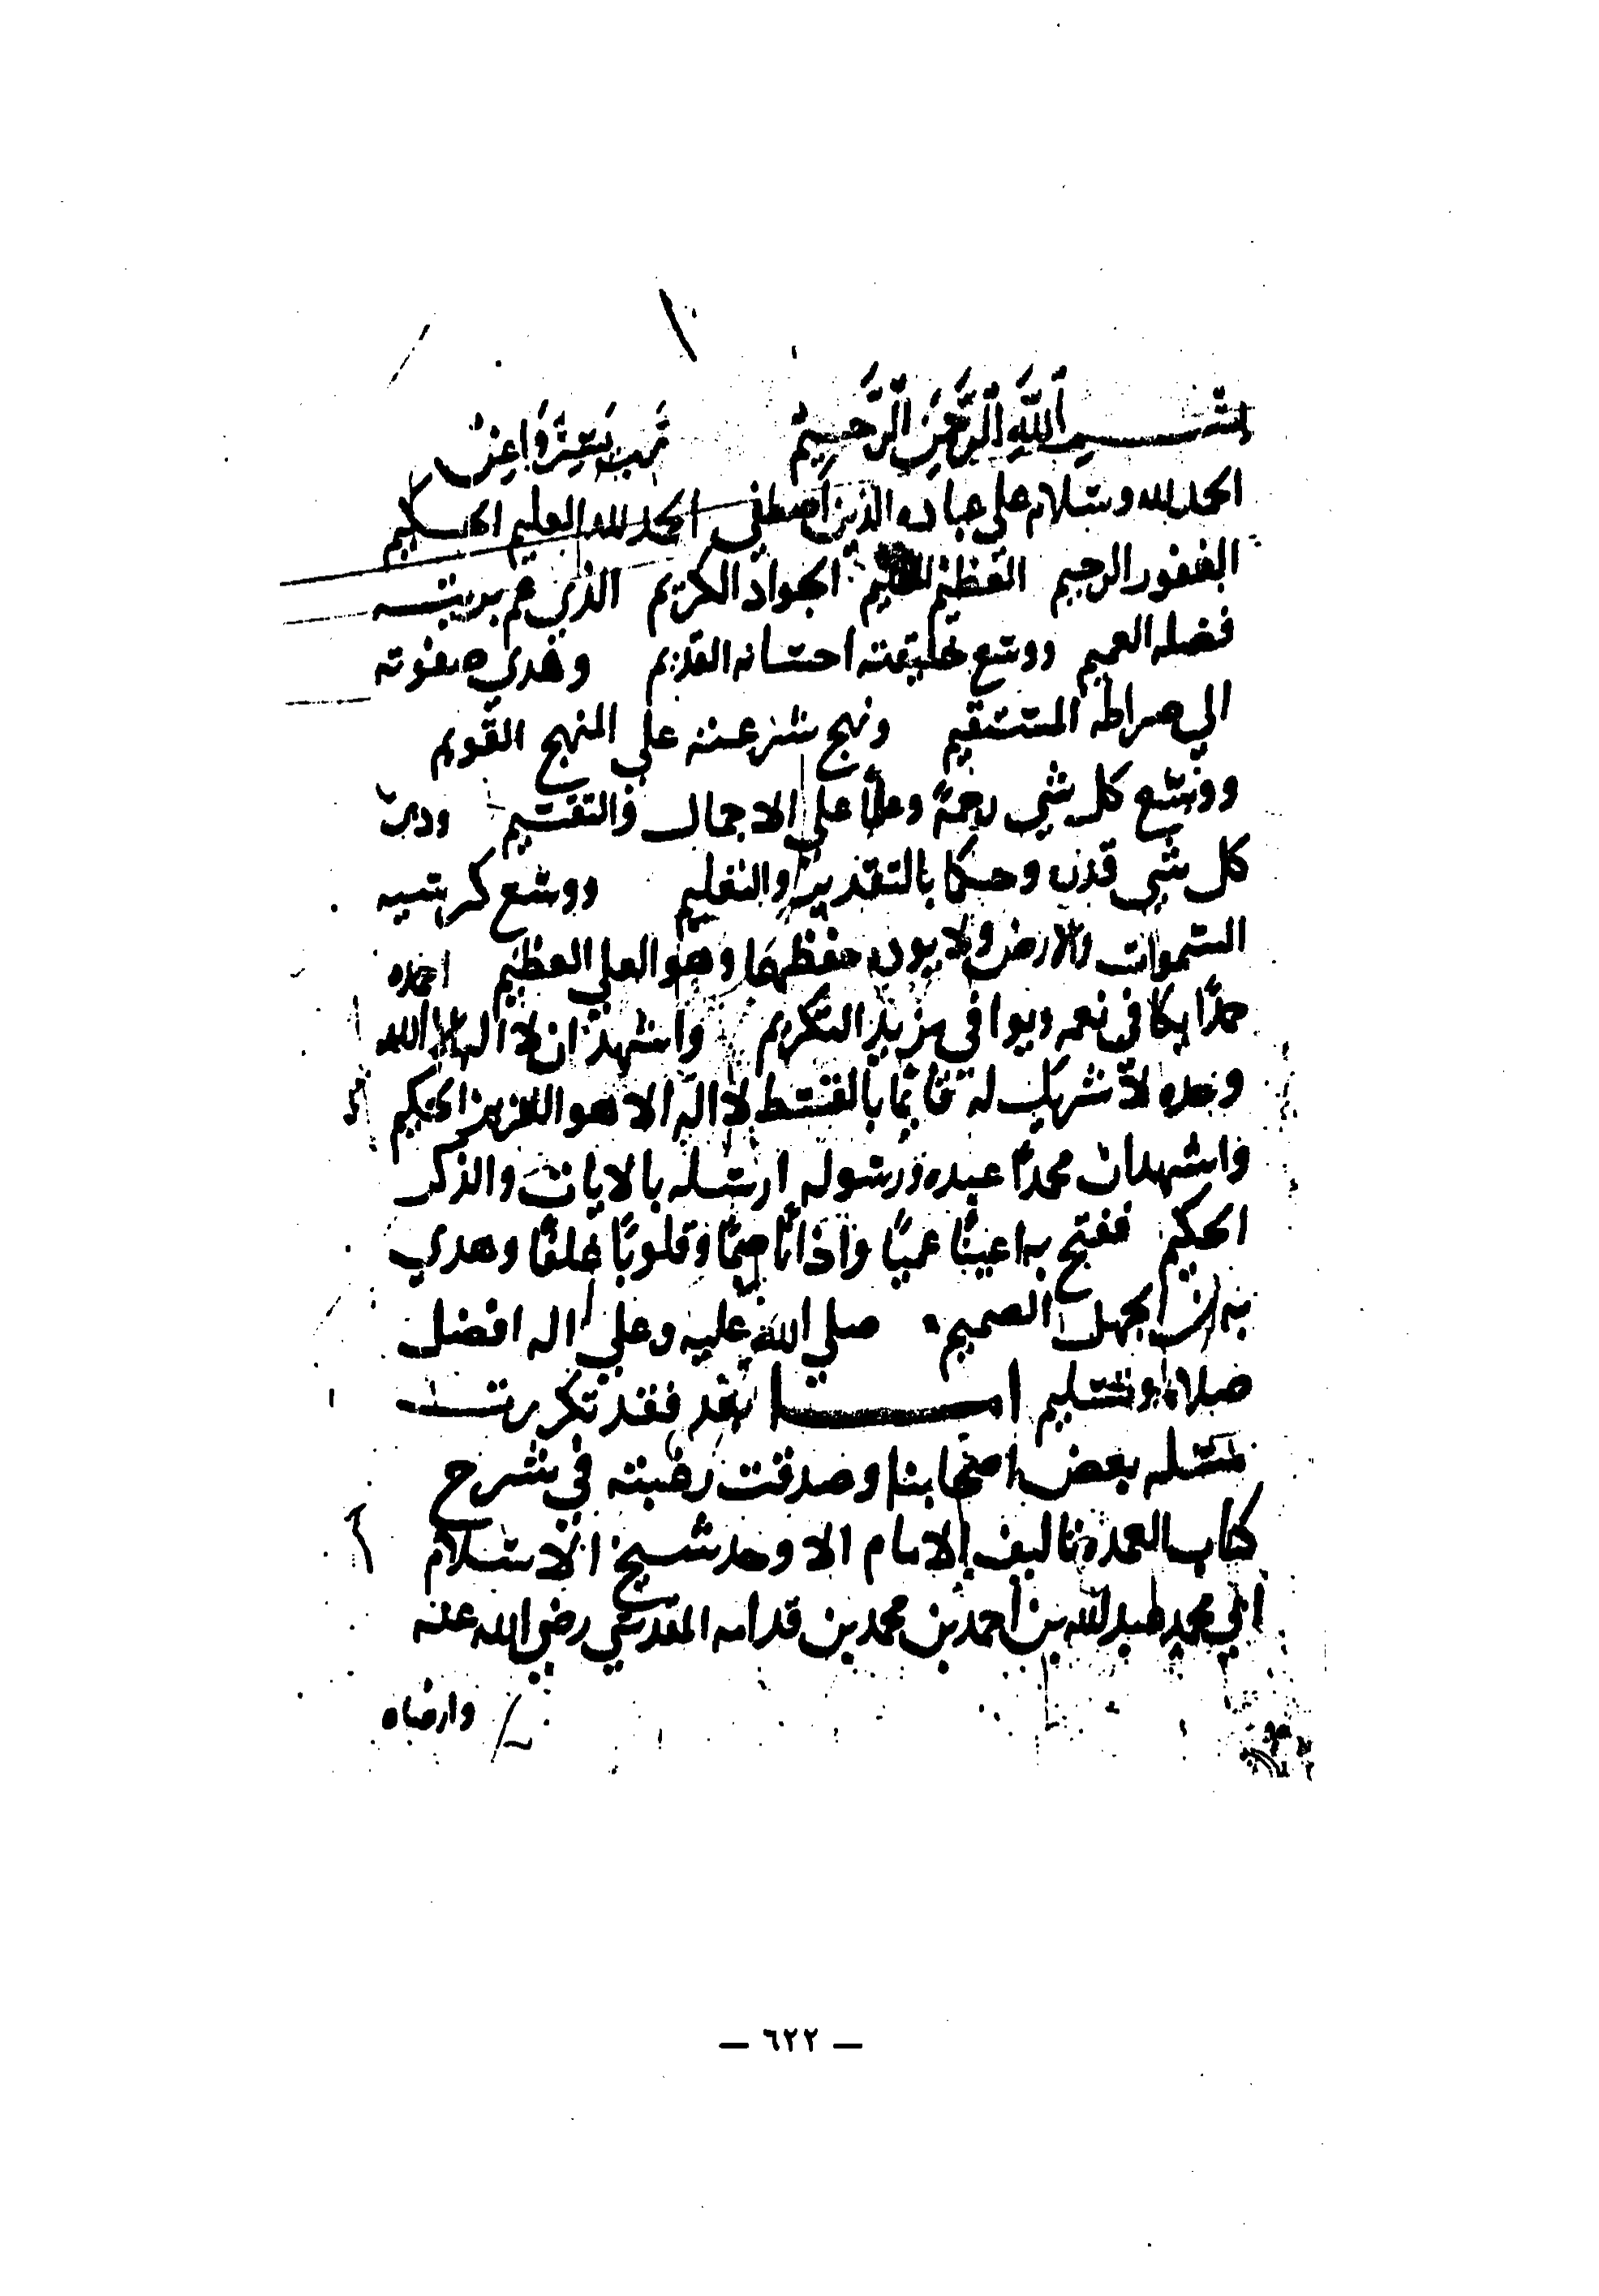 بسم الله الرحمن الرحيم رب يسر واعن
الحمد لله وسلام على عباده الذين اصطفى الحمد لله العليم الحكيم
الغفور الرحيم العظيم الحليم الجواد الكريم الذي عم بريته
فضله العميم ووسع خليقته احسانه القديم وهدى صفوته
الي صراطه المستقيم ونهج شرعته على المنهج القويم
ووسع كل شي رحمة وعلما على الاجمال والتقسيم
كل شي قدرة وحكما بالتقدير والتعليم ووسع كرسيه
السموات والارض ولا يوده حفظهما وهو العلي العظيم احمده
حمدا يكافى نعمه ويوافي مزيد التكريم واشهد ان لا اله الا الله
وحده لا شريك له قائما بالقسط لا اله الا هو العزيز الحكيم
واشهد ان محمدا عبده ورسوله ارسله بالايات والذكر
الحكيم ففتح به اعينا عميا واذانا صما وقلوبا غلفا وهدي
به من الجهل الصميم صلى الله عليه وعلى اله افضل
صلاة وتسليم امــا بعد فقد تكررت
مسئلة بعض اصحابنا وصدقت رغبته في شرح
كتاب العمدة تاليف الامام الاوحد شيخ الاسلام
ابي محمد عبد الله بن احمد بن محمد بن قدامه المقدسي رضي الله عنه
وارضاه
— ٦٢٢ —